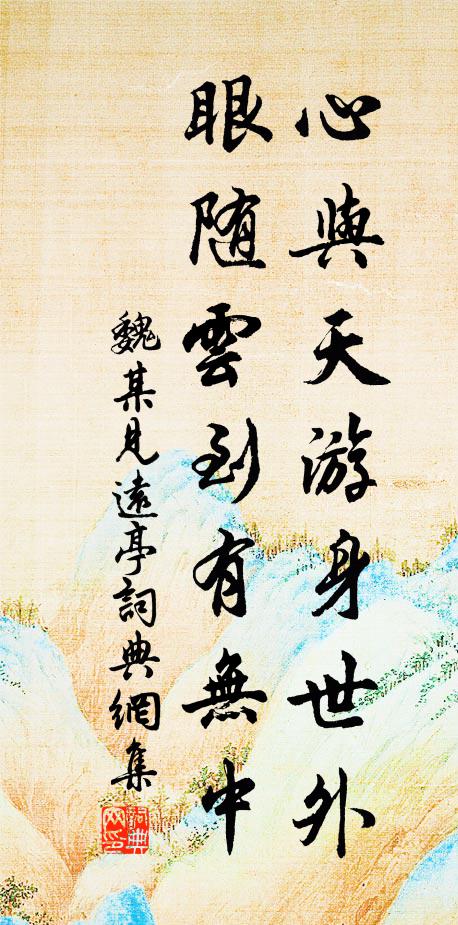 心與天游身世外
眼随雲到有無中
魏某見遠亭詞典網集
詞典
网印